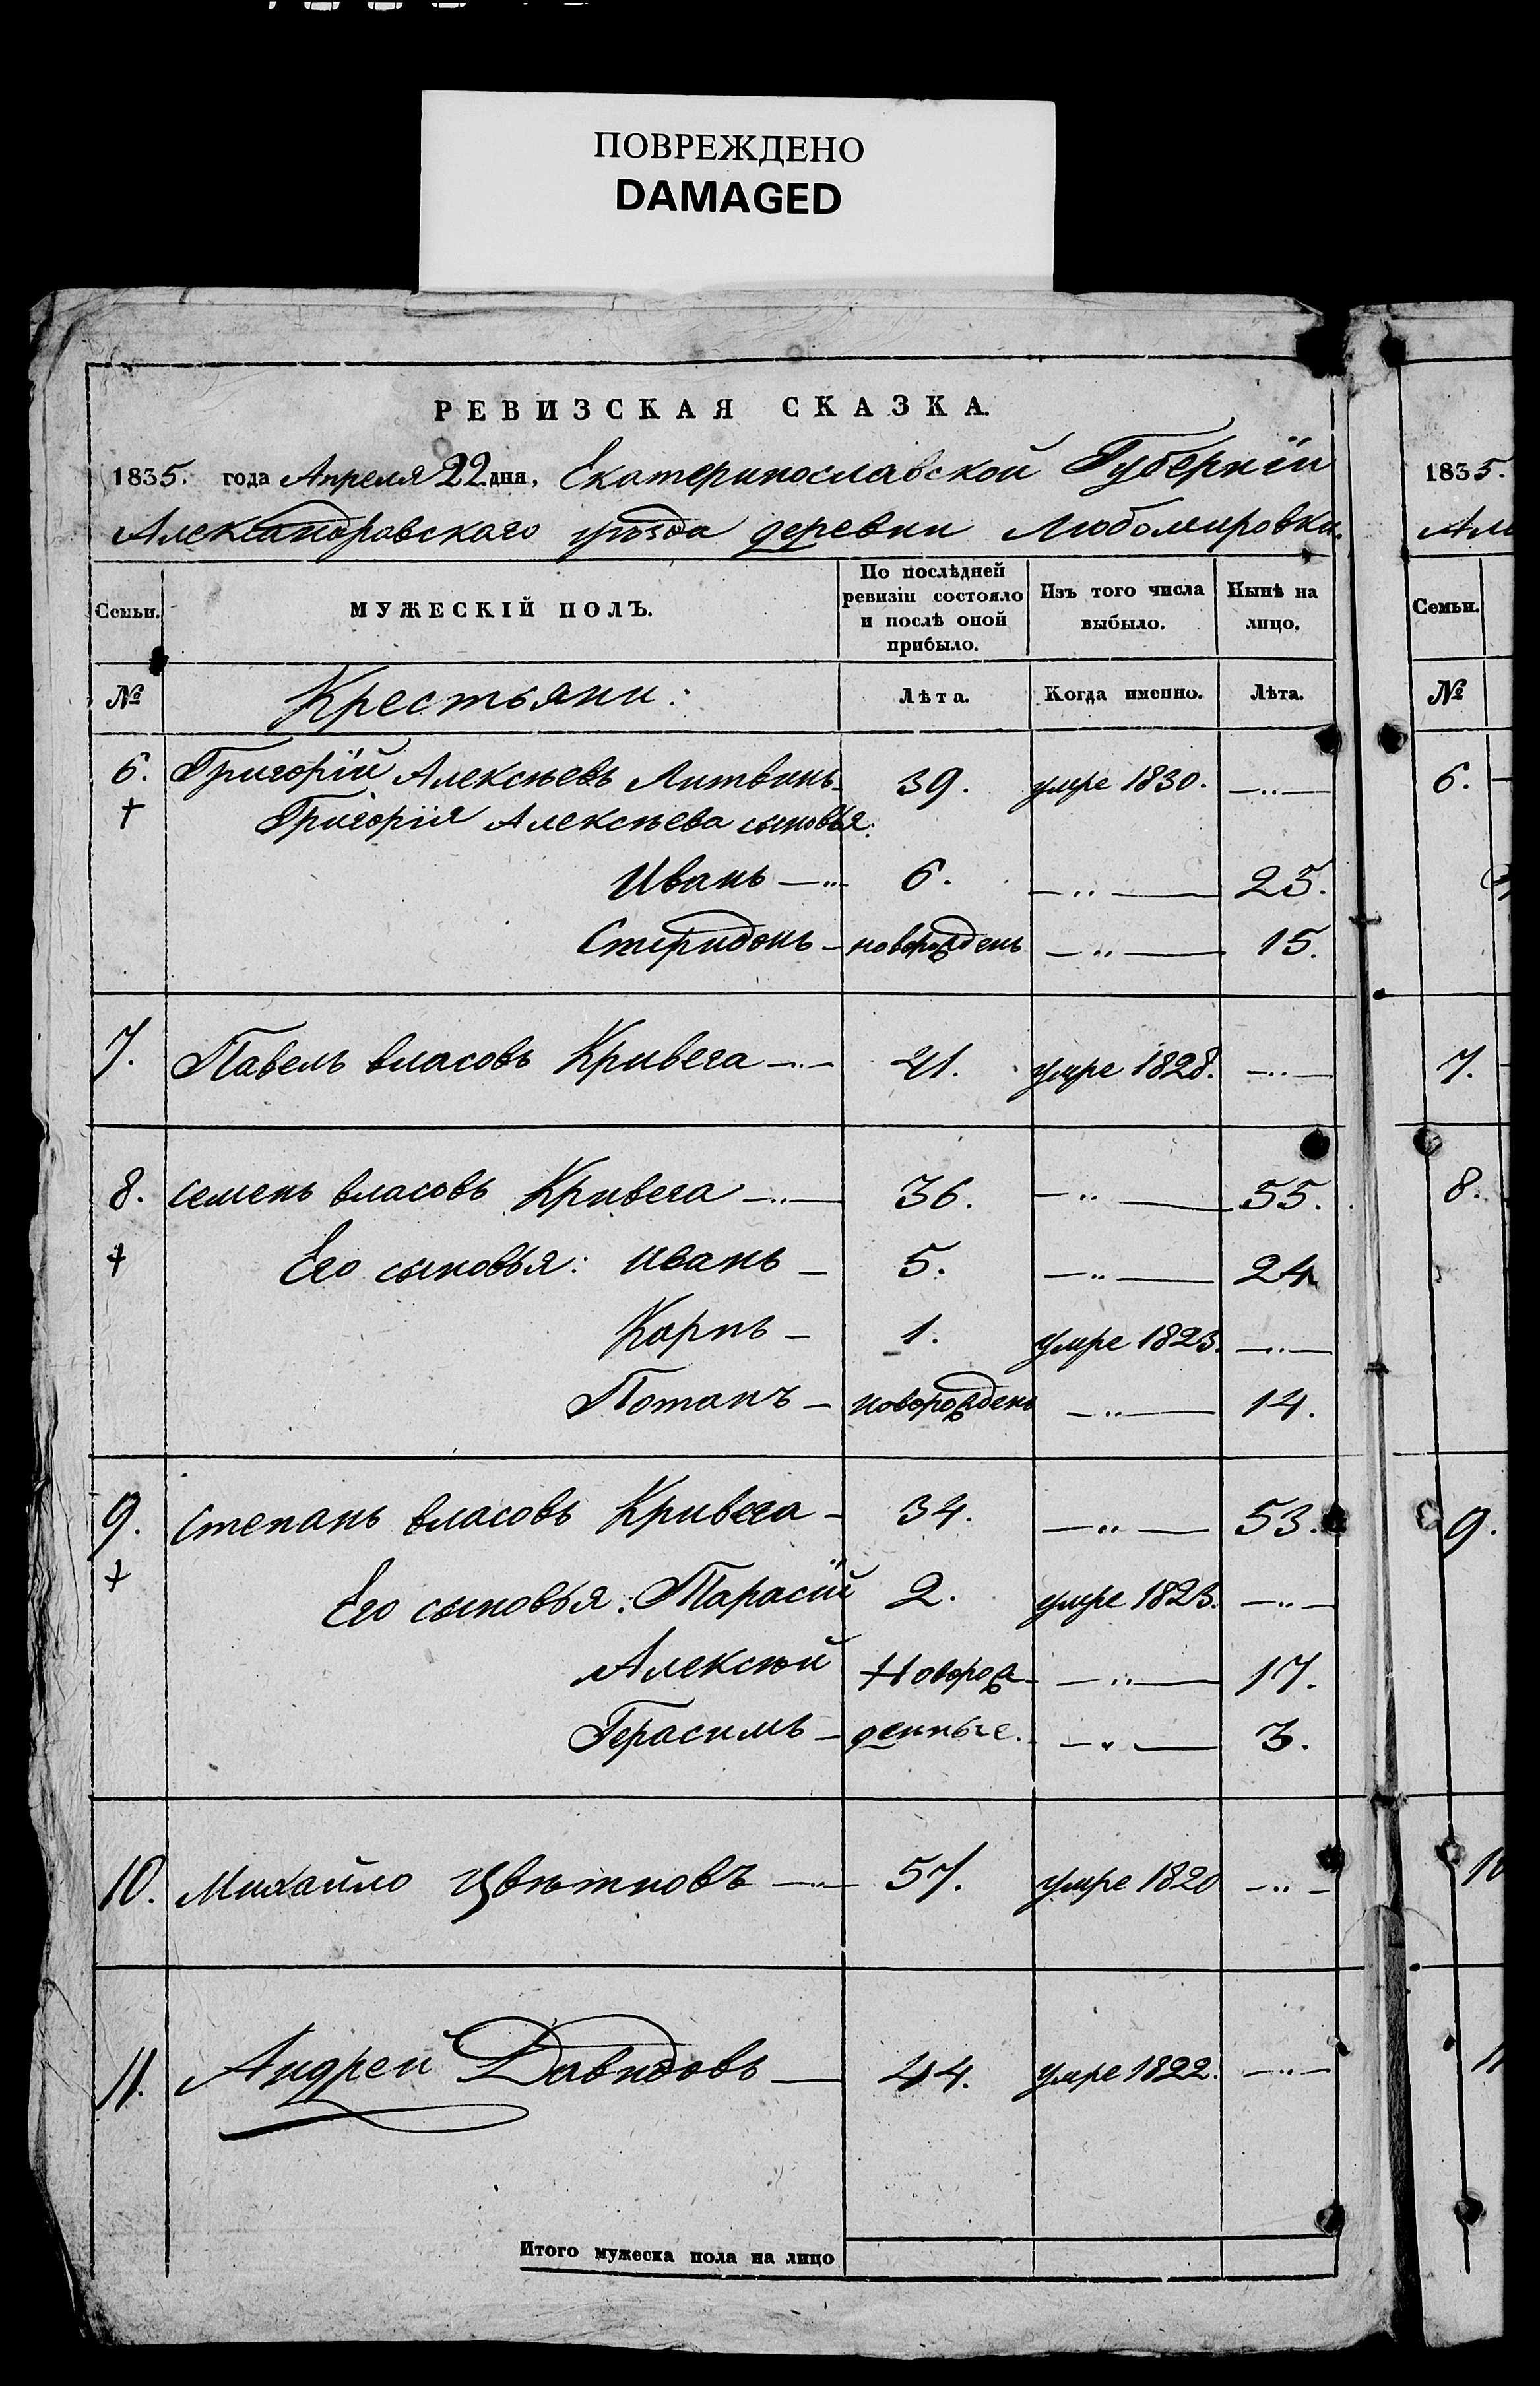 ПОВРЕЖДЕНО
DAMAGED
РЕВИЗСКАЯ СКАЗКА.
1835. года Апреля 22 дня, Екатеринославской Губернїи
Александровскаго уѣзда деревни Любомировки.
Семьи. МУЖЕСКІЙ ПОЛЪ. По послѣдней ревизіи состояло и послѣ оной прибыло. Изъ того числа выбыло. Нынѣ на лицо.
№ Крестьяни: Лѣта. Когда именно. Лѣта.
6. Григорїй Алексѣевъ Литвинъ 39. умре 1830. —„—
+ Григорїя Алексѣева сыновья:
Иванъ —„— 6. —„— 25.
Спиридонъ — новорожденъ —„— 15.
7. Павелъ власовъ Кривега —„— 41. умре 1828. —„—
8. семенъ власовъ Кривега —„— 36. —„— 55.
+ Его сыновья: иванъ — 5. —„— 24
Карпъ — 1. умре 1823. —„—
Потапъ — новорожденъ —„— 14.
9. степанъ власовъ Кривега — 34. —„— 53.
+ Его сыновья: Тарасїй 2. умре 1823. —„—
Алексѣй Новорож- —„— 17.
Герасимъ — денные. —„— 3.
10. Михайло Цвѣтковъ —„— 57. умре 1820 —„—
11. Андреи Давидовъ — 44. умре 1822. —„—
Итого мужеска пола на лицо
1835.
Але
Семьи.
№
6.
7.
8.
9.
10
11